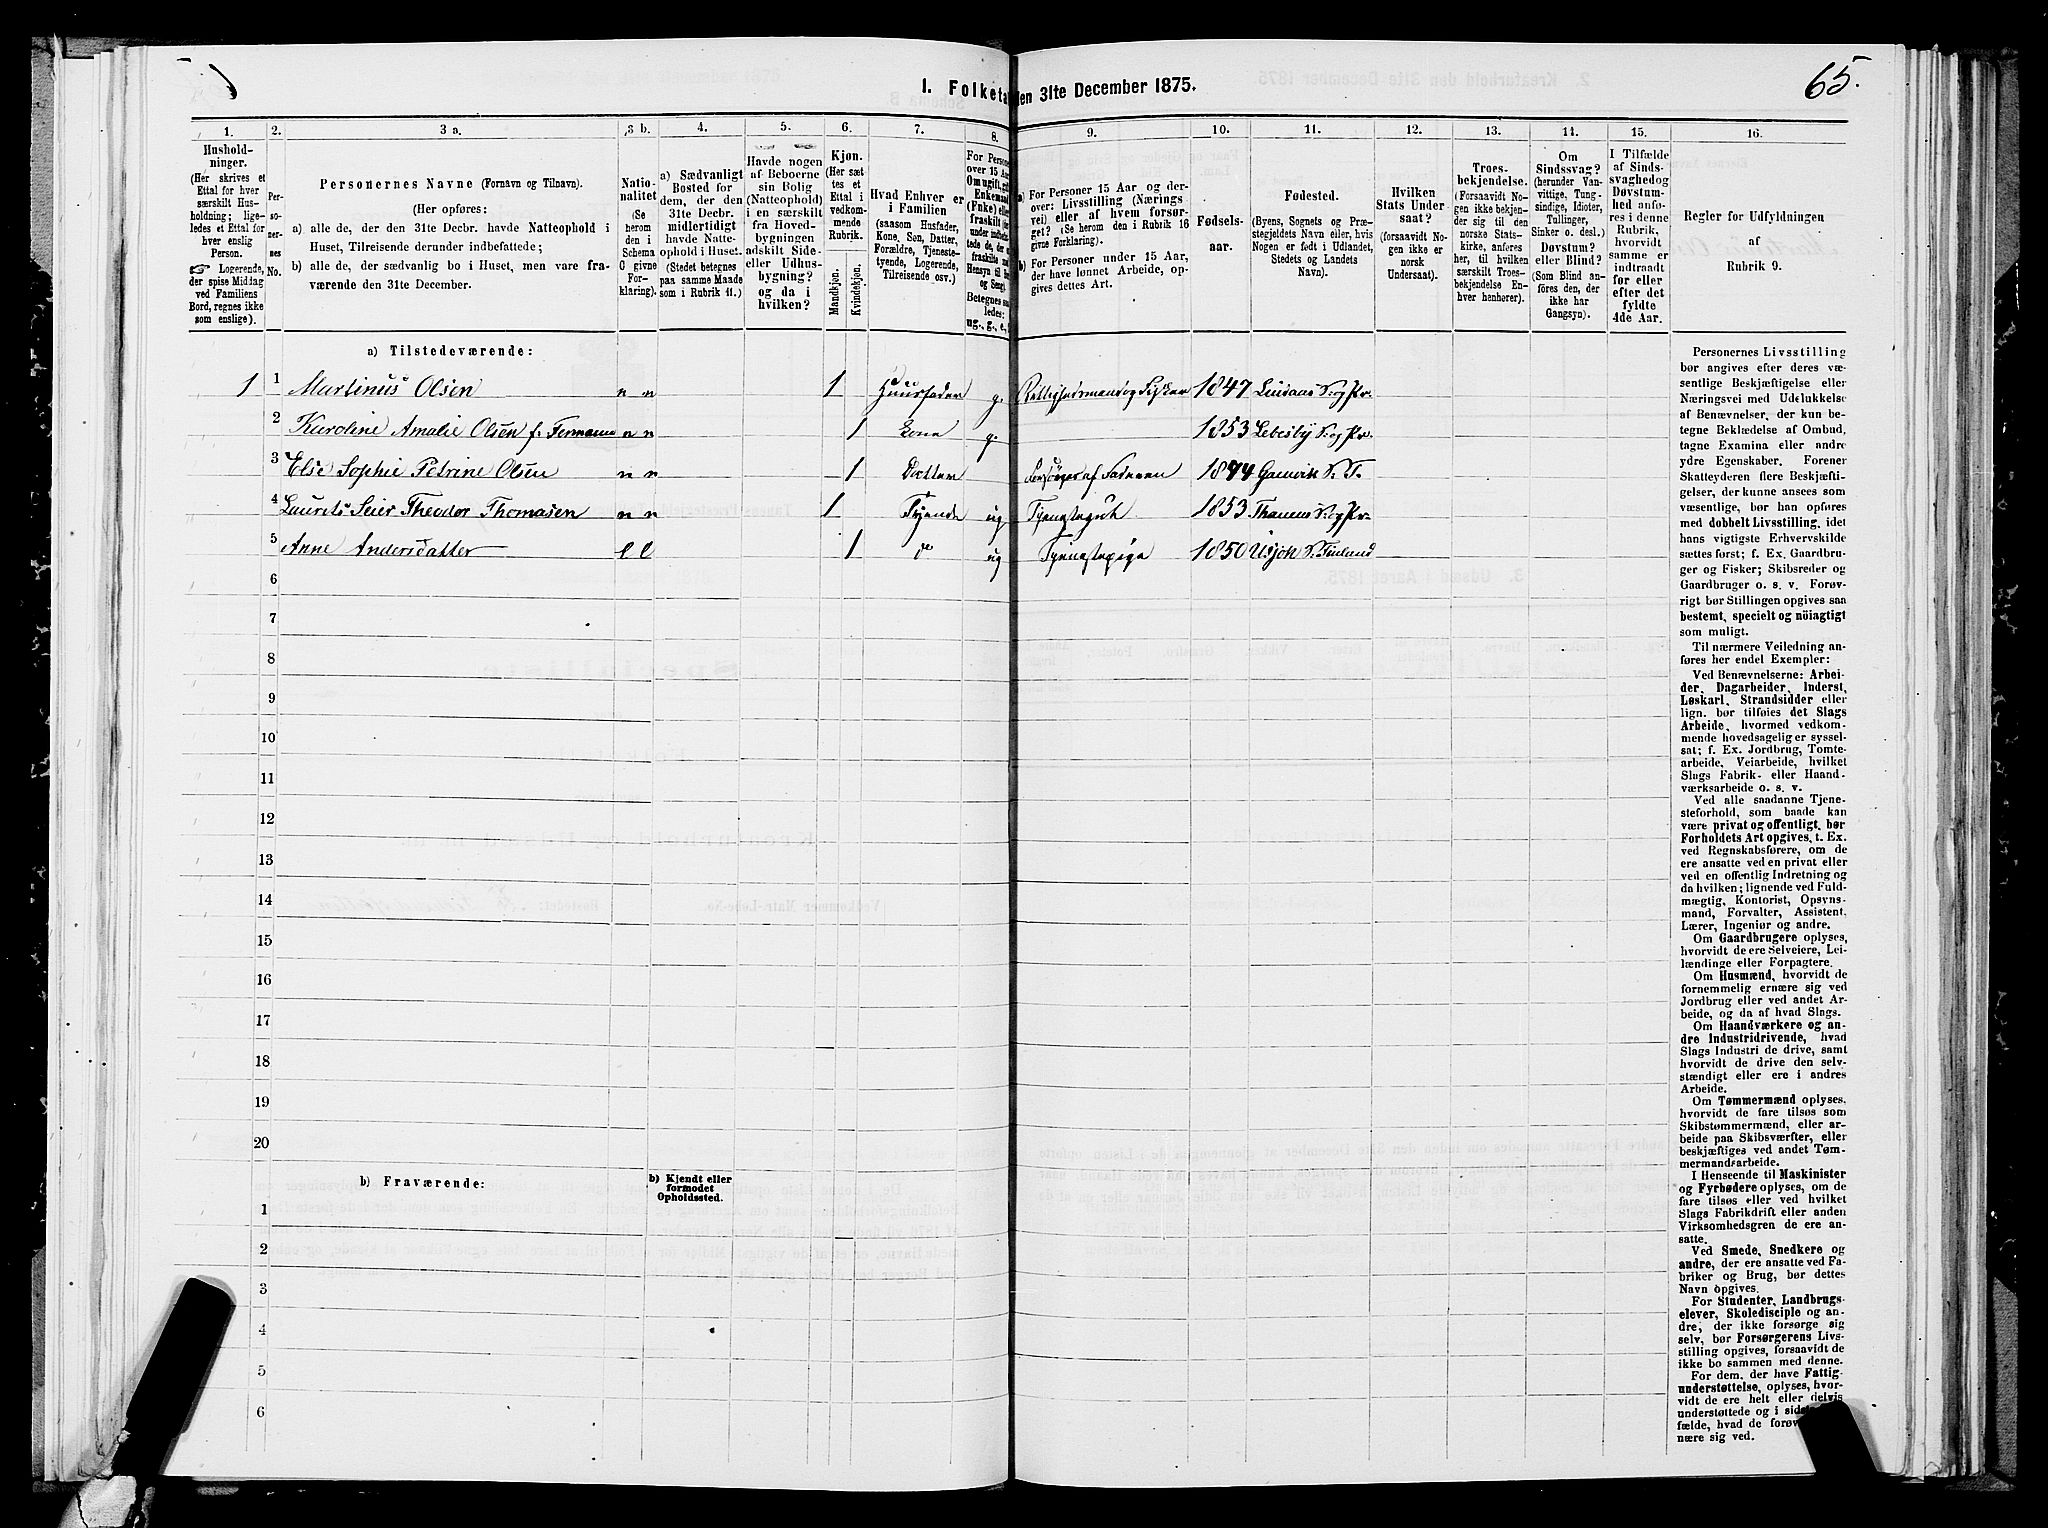 65.
1. Folketa den 31te December 1875.
1. 2. 3 a. 3 b. 4. 5. 6. 7. 8. 9. 10. 11. 12. 13. 14. 15. 16.
Hushold-
ninger.
(Her skrives et
Ettal for hver
særskilt Hus-
holdning; lige-
ledes et Ettal for
hver enslig
Person.
☞ Logerende,
der spise Middag
ved Familiens
Bord, regnes ikke
som enslige).
Per-
so-
ner-
nes
No.
Personernes Navne (Fornavn og Tilnavn).
(Her opføres:
a) alle de, der den 31te Decbr. havde Natteophold i
Huset, Tilreisende derunder indbefattede;
b) alle de, der sædvanlig bo i Huset, men vare fra-
værende den 31te December.
Natio-
nalitet
(Se
herom
den i
Schema
G givne
For-
klaring).
a) Sædvanligt
Bosted for
dem, der den
31te Decbr.
midlertidigt
havde Natte-
ophold i Huset.
(Stedet betegnes
paa samme Maade
som i Rubrik 11.)
Havde nogen
af Beboerne
sin Bolig
(Natteophold)
i en særskilt
fra Hoved-
bygningen
adskilt Side-
eller Udhus-
bygning?
og da i
hvilken?
Kjøn.
(Her sæt
tes et
Ettal i
vedkom-
mende
Rubrik.
Mandkjøn.
Kvindekjøn.
Hvad Enhver er
i Familien
(saasom Husfader,
Kone, Søn, Datter,
Forældre, Tjeneste-
tyende, Logerende,
Tilreisende osv.)
For Persone
over 15 Aar
Om ugift, gift
Enkemand
(Enke) eller
fraskilt
Betegnes saa
ledes:
ug., g., e.,
a) For Personer 15 Aar og der-
over: Livsstilling (Nærings
vei) eller af hvem forsør-
get? (Se herom den i Rubrik 16
givne Forklaring).
b) For Personer under 15 Aar,
der have lønnet Arbeide, op-
gives dettes Art.
Fødsels-
aar.
Fødested.
(Byens, Sognets og Præ-
stegjeldets Navn eller, hvis
Nogen er født i Udlandet,
Stedets og Landets
Navn).
Hvilken
Stats Under-
saat?
(forsaavidt No-
gen ikke er
norsk
Undersaat).
Troes-
bekjendelse.
(Forsaavidt No-
gen ikke bekjen-
der sig til den
norske Stats-
kirke, anføres
her, til hvilken
særskilt Troes-
bekjendelse En-
hver henhører).
Om
Sindssvag?
(herunder Van-
vittige, Tung-
sindige, Idioter,
Tullinger,
Sinker o. desl.)
Døvstum?
eller Blind?
(Som Blind an-
føres den, der
ikke har
Gangsyn).
I Tilfælde
af Sinds-
svaghed og
Døvstum-
hed anfø-
res i denne
Rubrik,
hvorvidt
samme er
indtraadt
før eller
efter det
fyldte
4de Aar.
Regler for Udfyldningen
af
Rubrik 9.
a) Tilstedeværende:
1 1 Martinus Olsen n n 1 Huusfader g. Rettighedsmand og Fisker 1847 Lindaas S: og Pr.
2 Karoline Amalie Olsen f. n n 1 Kone g. 1853 Lebesby S: og Pr.
3 Else Sophie Petrine Olsen n n 1 Datter Forsørges af Faderen 1874 Gamvik S.
4 Laurits Seier Theodor Thomasen n n 1 Tyende ug Tjenestegut 1853 Thanens S: og Pr.
5 Anne Andersdatter l l 1 do ug Tjenestepige 1850 Utsjok S. Finland
6
7
8
9
10
11
12
13
14
15
16
17
18
19
20
b) Fraværende:
b) Kjendt eller
formodet
Opholdssted.
1
2
3
4
5
6
Personernes Livsstilling
bør angives efter deres væ-
sentlige Beskjæftigelse eller
Næringsvei med Udelukkelse
af Benævnelser, der kun be-
tegne Beklædelse af Ombud,
tagne Examina eller andre
ydre Egenskaber. Forener
Skatteyderen flere Beskjæfti-
gelser, der kunne ansees som
væsentlige, bør han opføres
med dobbelt Livsstilling, idet
hans vigtigste Erhvervskilde
sættes først; f. Ex. Gaardbru-
ger og Fisker; Skibsreder og
Gaardbruger o. s. v. Forøv-
rigt bør Stillingen opgives saa
bestemt, specielt og nöiagtigt
som muligt.
Til nærmere Veiledning an-
føres her endel Exempler:
Ved Benævnelserne: Arbei-
der, Dagarbeider, Inderst,
Løskarl, Strandsidder eller
lign. bør tilføies det Slags
Arbeide, hvormed vedkom-
mende hovedsagelig er syssel-
sat; f. Ex. Jordbrug, Tomte-
arbeide, Veiarbeide, hvilket
Slags Fabrik- eller Haand-
værksarbeide o. s. v.
Ved alle saadanne Tjene-
steforhold, som baade kan
være privat og offentligt, bør
Forholdets Art opgives, t. Ex.
ved Regnskabsførere, om de
ere ansatte ved en privat eller
ved en offentlig Indretning og
da hvilken; lignende ved Fuld-
mægtig, Kontorist, Opsyns-
mand, Forvalter, Assistent,
Lærer, Ingeniør og andre.
Om Gaardbrugere oplyses,
hvorvidt de ere Selveiere, Lei-
lændinge eller Forpagtere.
Om Husmænd, hvorvidt de
fornemmelig ernære sig ved
Jordbrug eller ved andet Ar-
beide, og da af hvad Slags.
Om Haandværkere og an-
dre Industridrivende, hvad
Slags Industri de drive, samt
hvorvidt de drive den selv-
stændigt eller ere i andres
Arbeide.
Om Tømmermænd oplyses,
hvorvidt de fare tilsøs som
Skibstømmermænd, eller ar-
beide paa Skibsværfter, eller
beskjæftiges ved andet Tøm-
mermandsarbeide.
I Henseende til Maskinister
og Fyrbødere oplyses, om de
fare tilsøs eller ved hvilket
Slags Fabrikdrift eller anden
Virksomhedsgren de ere an-
satte.
Ved Smede, Snedkere og
andre, der ere ansatte ved Fa-
briker og Brug, bør dettes
Navn opgives.
For Studenter, Landbrugs-
elever, Skoledisciple og an-
dre, der ikke forsørge sig
selv, bør Forsørgerens Livs-
stilling opgives, forsaavidt de
ikke bo sammen med denne.
For dem, der have Fattig-
understøttelse, oplyses, hvor-
vidt de ere helt eller delvis
understøttede og i
fælde, hvad de
nære sig ved.